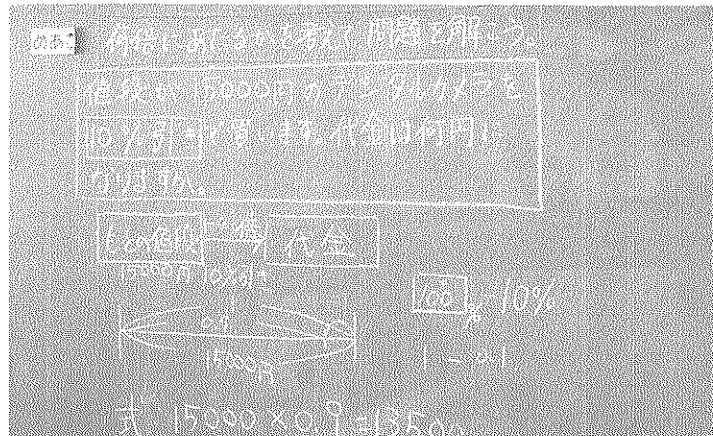 めあて 何倍にあたるかを考えて問題を解こう。
値段が15000円のデジタルカメラを
10%引きで買います。代金は何円に
なりますか。
もとの値段 倍 代金
15000円 10%引き
0.9
15000円
100% - 10%
1 - 0.1
式 15000×0.9=13500